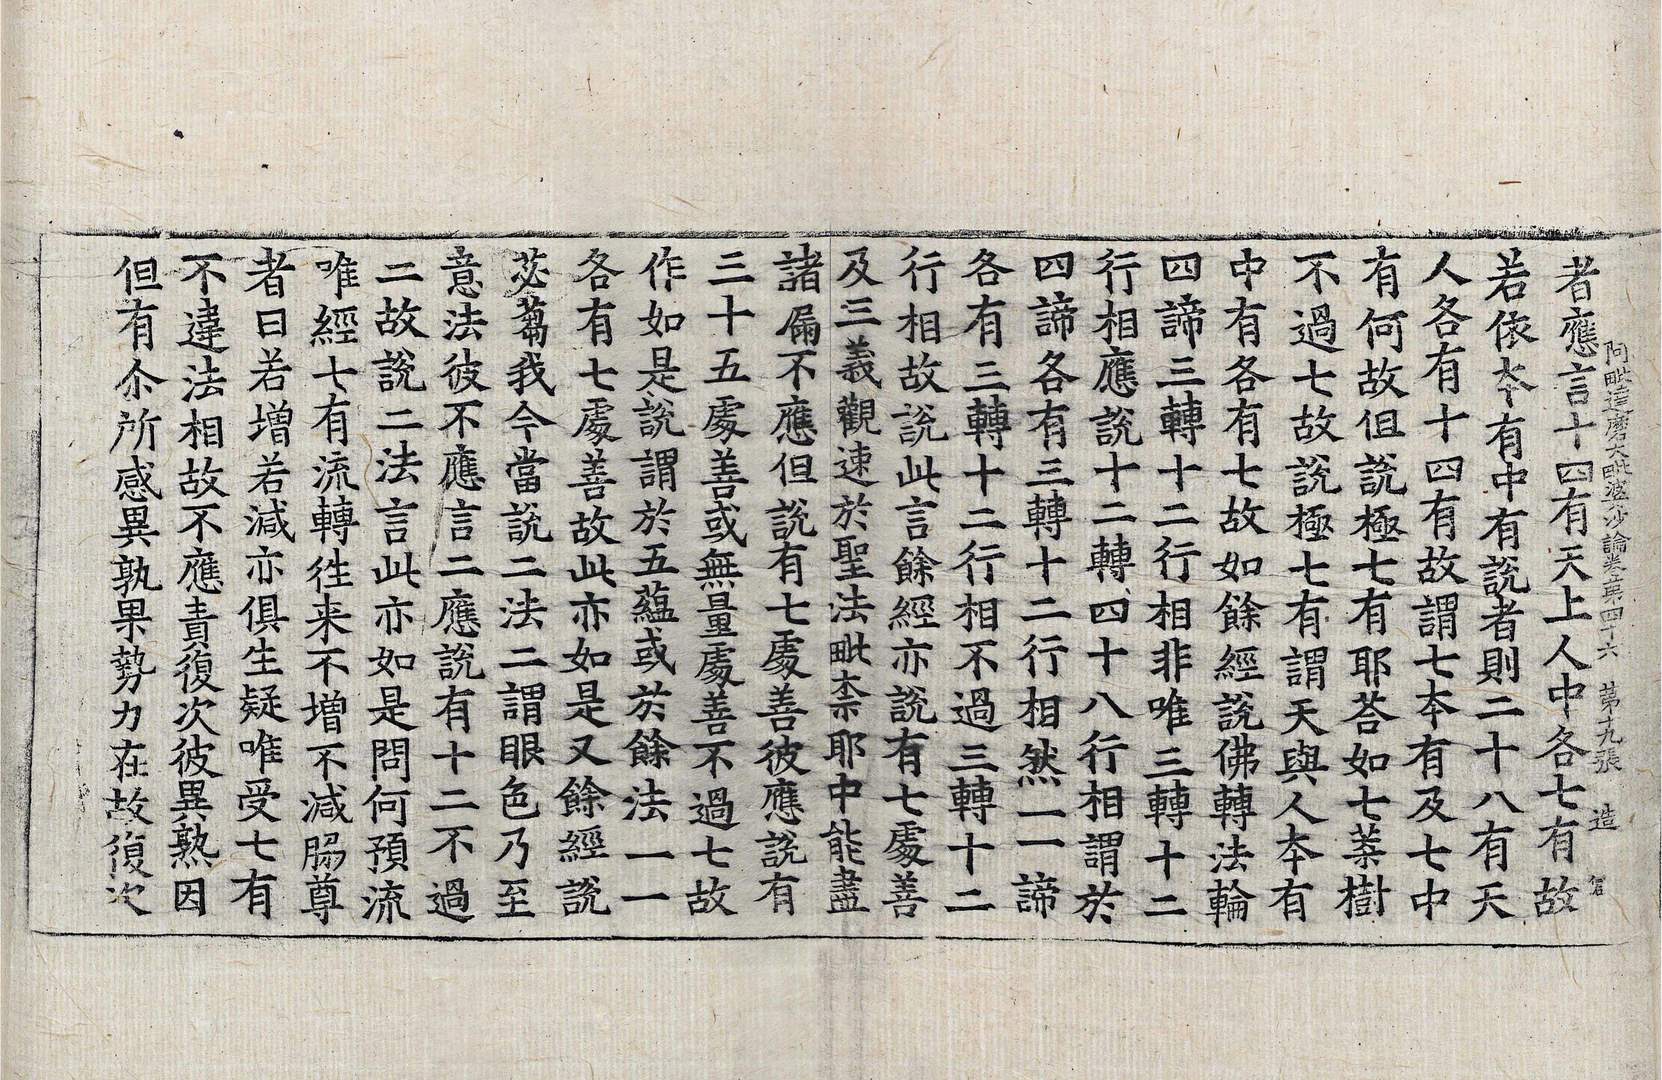 阿毗達磨大毗婆沙論卷第四十六 第十九張 造
者應言十四有天上人中各七有故
若依本有中有說者則二十八有天
人各有十四有故謂七本有及七中
有何故但說極七有耶荅如七葉樹
不過七故說極七有謂天與人本有
中有各有七故如餘經說佛轉法輪
四諦三轉十二行相非唯三轉十二
行相應說十二轉四十八行相謂於
四諦各有三轉十二行相然一一諦
各有三轉十二行相不過三轉十二
行相故說此言餘經亦說有七處善
及三義觀速於聖法毗柰耶中能盡
諸漏不應但說有七處善彼應說有
三十五處善或無量處善不過七故
作如是說謂於五蘊或於餘法一一
各有七處善故此亦如是又餘經說
苾蒭我今當說二法二謂眼色乃至
意法彼不應言二應說有十二不過
二故說二法言此亦如是問何預流
唯經七有流轉徃来不增不減脇尊
者曰若增若減亦俱生疑唯受七有
不違法相故不應責復次彼異熟因
但有尒所感異孰果勢力在故復次